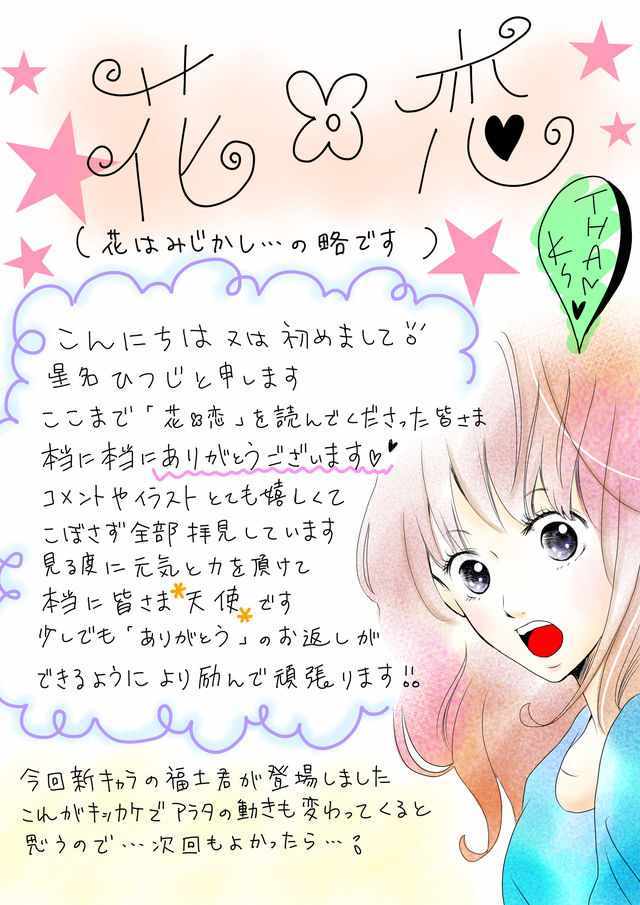 花✿恋
(花はみじかし…の略です)
THANKS♥
こんにちは 又は 初めまして
星名 ひつじと申します
ここまで「花✿恋」を読んでくださった皆さま
本当に本当にありがとうございます♡♥
コメントやイラスト とても嬉しくて
こぼさず全部拝見しています
見る度に 元気と力を頂けて
本当に皆さま*天使*です
少しでも「ありがとう」のお返しが
できるように より励んで頑張ります!!
今回新キャラの福士君が登場しました
これがキッカケでアラタの動きも変わってくると
思うので…次回もよかったら…